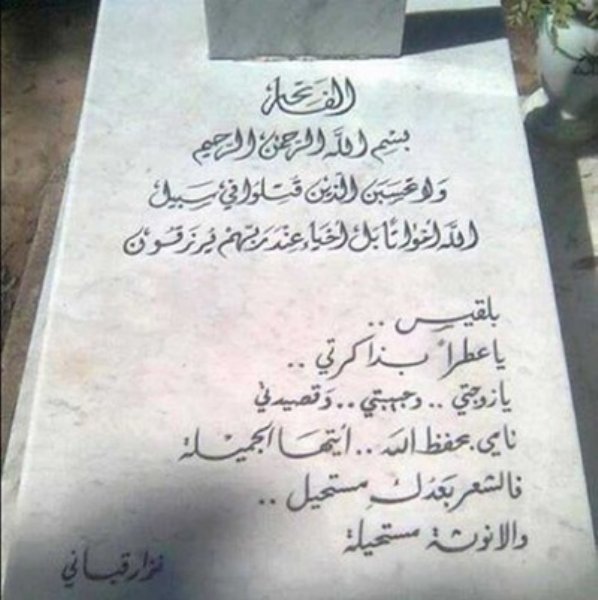 الفاتحة
بسم الله الرحمن الرحيم
ولا تحسبن الذين قتلوا في سبيل
الله أمواتا بل أحياء عند ربهم يرزقون
بلقيس ..
يا عطراً بذاكرتي ..
يا زوجتي .. وحبيبتي .. وقصيدتي
نامي بحفظ الله .. أيتها الجميلة
فالشعر بعدك مستحيل ..
والانوثة مستحيلة
نزار قباني